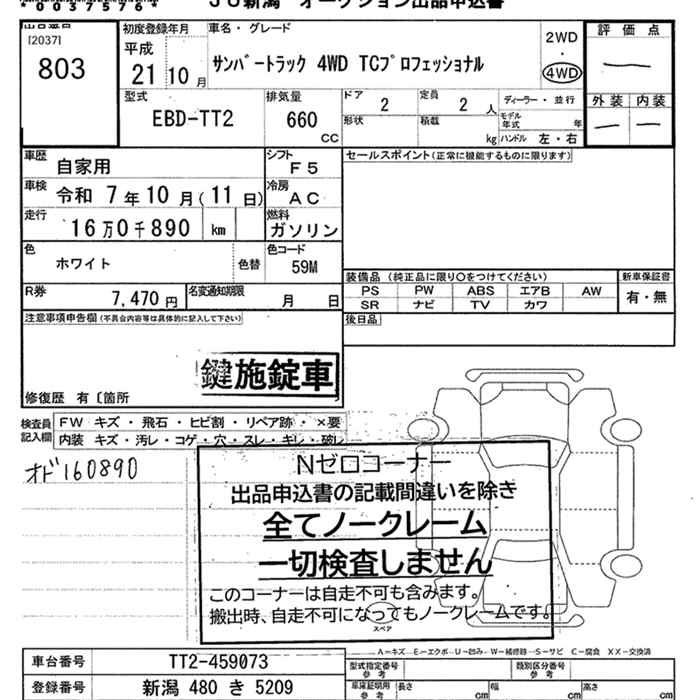 *0037576*
JU新潟 オークション出品申込書
出品番号
[2037]
803
初度登録年月
平成
21 10 月
車名・グレード
サンバートラック 4WD TCプロフェッショナル
2WD
・
4WD
評価点
外装 内装
型式
EBD-TT2
排気量
660
CC
ドア
2
定員
2 人
形状
積載
kg
ディーラー・並行
モデル年式 年
ハンドル 左・右
車歴
自家用
シフト
F5
セールスポイント(正常に機能するものに限ります)
車検
令和 7年10月(11日)
冷房
AC
走行
16万0千890 km
燃料
ガソリン
色
ホワイト
色替
色コード
59M
装備品(純正品に限り○をつけてください)
新車保証書
PS PW ABS エアB AW
SR ナビ TV カワ
有・無
R券
7,470円
名変通知期限
月 日
注意事項申告欄(不具合内容等は具体的に記入して下さい)
後日品
鍵施錠車
修復歴 有〔箇所
検査員記入欄
FW キズ・飛石・ヒビ割・リペア跡・×要
内装 キズ・汚レ・コゲ・穴・スレ・キレ・破レ
オド160890
Nゼロコーナー
出品申込書の記載間違いを除き
全てノークレーム
一切検査しません
このコーナーは自走不可も含みます。
搬出時、自走不可になってもノークレームです。
スペア
A=キズ E=エクボ U=凹み W=補修跡 S=サビ C=腐食 XX=交換済
車台番号
TT2-459073
型式指定番号
参考
類別区分番号
参考
登録番号
新潟 480 き 5209
車庫証明用
参考
長さ
cm
幅
cm
高さ
cm